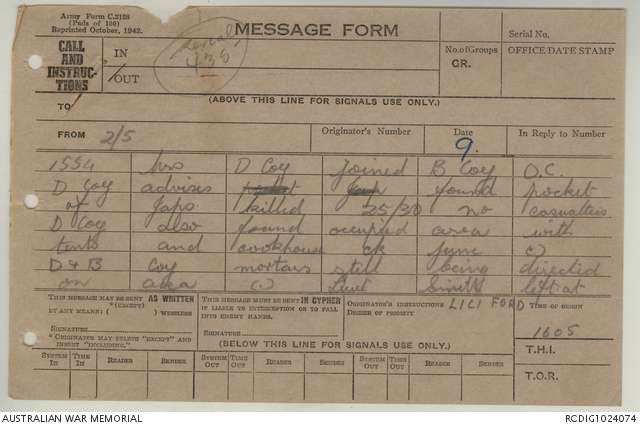 Army Form C.2128
(Pads of 100)
Reprinted October, 1942.
MESSAGE FORM
Serial No.
CALL
AND
INSTRUC-
TIONS
IN
OUT
Serial
435
No. of Groups
GR.
OFFICE DATE STAMP
TO
(ABOVE THIS LINE FOR SIGNALS USE ONLY.)
FROM 2/5
Originator's Number
Date
9.
In Reply to Number
1554 hrs D Coy joined B Coy O.C.
D Coy advises found pocket
of Japs killed 25/30 no casualties
D Coy also found occupied area with
tents and cookhouse ck junc (.)
D & B Coy mortars still being directed
on area (.) Lieut Smith left at
THIS MESSAGE MAY BE SENT AS WRITTEN
*(EXCEPT)
BY ANY MEANS ( ) WIRELESS
SIGNATURE
*ORIGINATOR MAY DELETE "EXCEPT" AND
INSERT "INCLUDING."
THIS MESSAGE MUST BE SENT IN CYPHER
IF LIABLE TO INTERCEPTION OR TO FALL
INTO ENEMY HANDS.
SIGNATURE
ORIGINATOR'S INSTRUCTIONS LICI FORD
DEGREE OF PRIORITY
TIME OF ORIGIN
1605
(BELOW THIS LINE FOR SIGNALS USE ONLY.)
T.H.I.
T.O.R.
SYSTEM IN TIME IN READER SENDER SYSTEM OUT TIME OUT READER SENDER SYSTEM OUT TIME OUT READER SENDER
AUSTRALIAN WAR MEMORIAL
RCDIG1024074